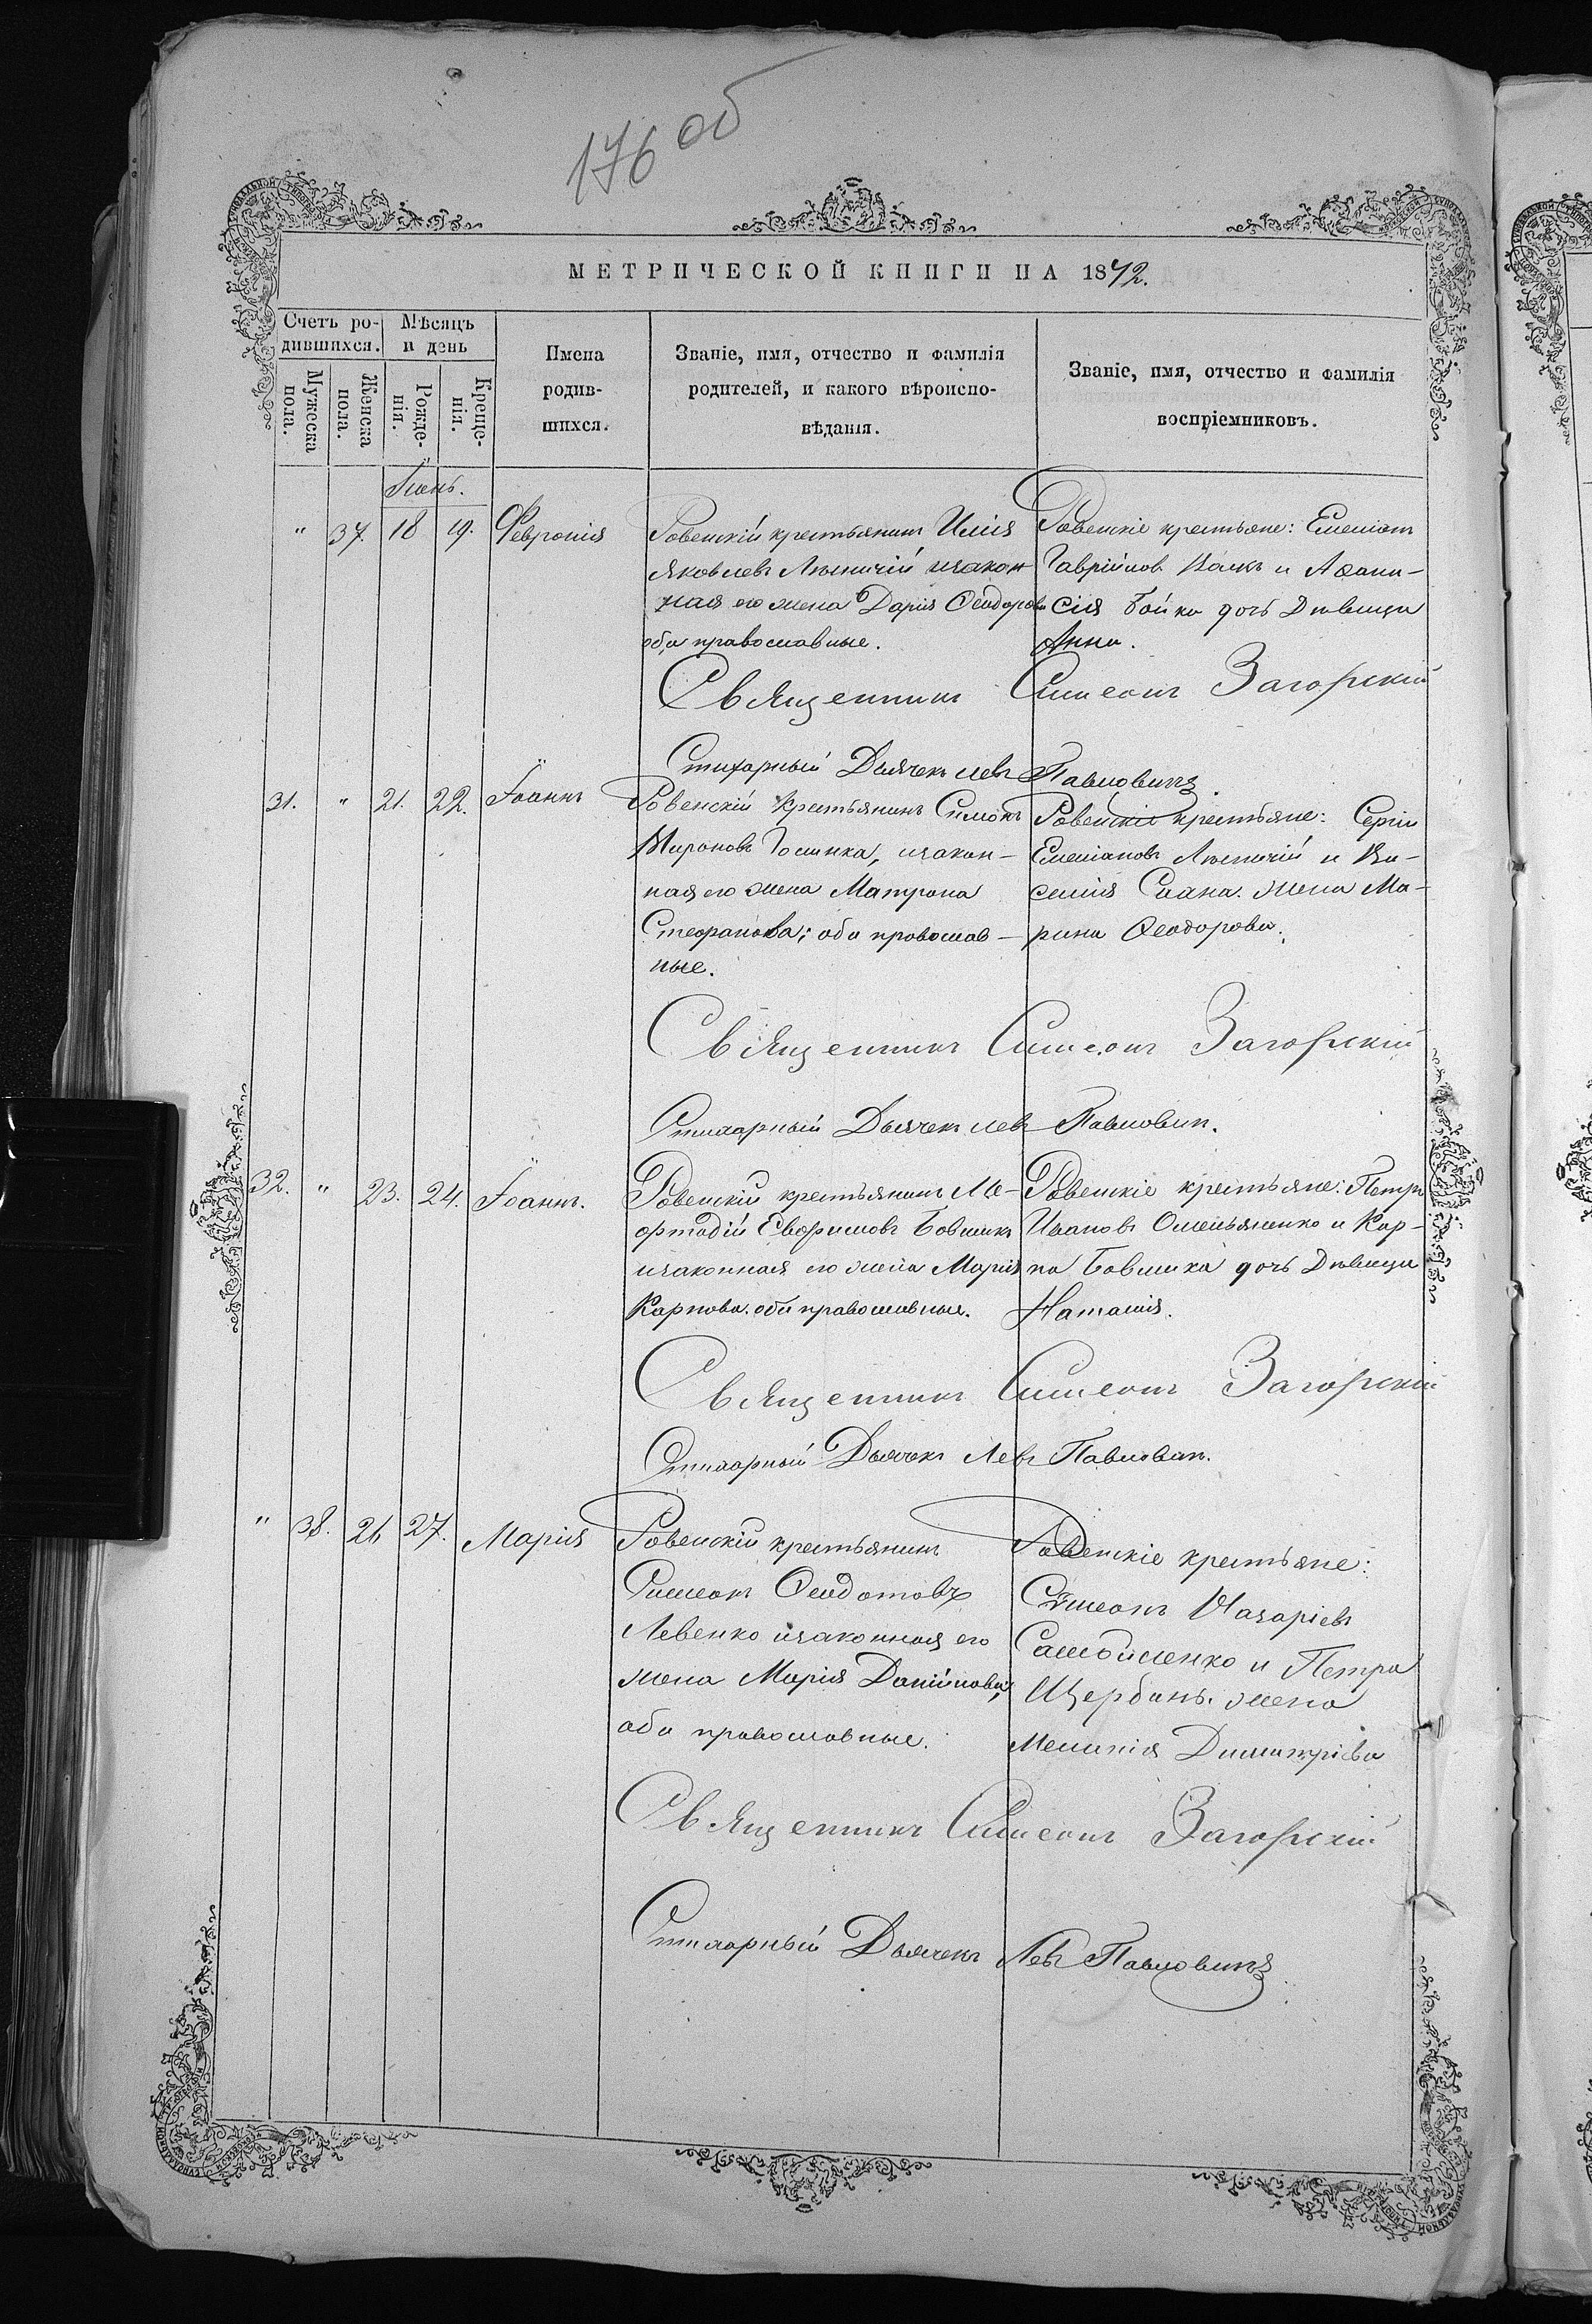 176 об
МЕТРИЧЕСКОЙ КНИГИ НА 1872.
Счетъ ро-
дившихся.
Мѣсяцъ
и день
Мужеска
пола.
Женска
пола.
Рожде-
нія.
Креще-
нія.
Имена
родив-
шихся.
Званіе, имя, отчество и фамилія
родителей, и какого вѣроиспо-
вѣданія.
Званіе, имя, отчество и фамилія
воспріемниковъ.
Іюнь.
" 37. 18 19. Февронія
Ровенскій крестьянинъ Илія
Яковлевъ изакон-
ная его жена Дарія Ѳеодорова
оба православные.
Ровенскіе крестьяне: Емеліанъ
Гавріиловъ и Аѳана-
сія Бойка дочь Дѣвица
Анна.
Священникъ Симеонъ Загорскій
Стихарный Дьячекъ Левъ Павловичъ.
31. " 21. 22. Іоаннъ
Ровенскій крестьянинъ Симонъ
Мироновъ изакон-
ная его жена Матрона
Стефанова; оба православ-
ные.
Ровенскіе крестьяне: Сергій
Емеліановъ и Ва-
силія жена Ма-
рина Ѳеодорова.
Священникъ Симеонъ Загорскій
Стихарный Дьячекъ Левъ Павловичъ.
32. " 23. 24. Іоаннъ.
Ровенскій крестьянинъ Ме-
фодій Евфимовъ
изаконная его жена Марія
Карпова. оба православные.
Ровенскіе крестьяне: Петръ
Ивановъ Омельяненко и Кар-
па дочь Дѣвица
Наталія.
Священникъ Симеонъ Загорскій
Стихарный Дьячекъ Левъ Павловичъ.
" 38. 26 27. Марія
Ровенскій крестьянинъ
Симеонъ Ѳеодотовъ
Левенко изаконная его
жена Марія Даніилова,
оба православные.
Ровенскіе крестьяне:
Симеонъ Назаріевъ
Самойленко и Петра
Щербань. жена
Меланія Димитріева
Священникъ Симеонъ Загорскій
Стихарный Дьячекъ Левъ Павловичъ